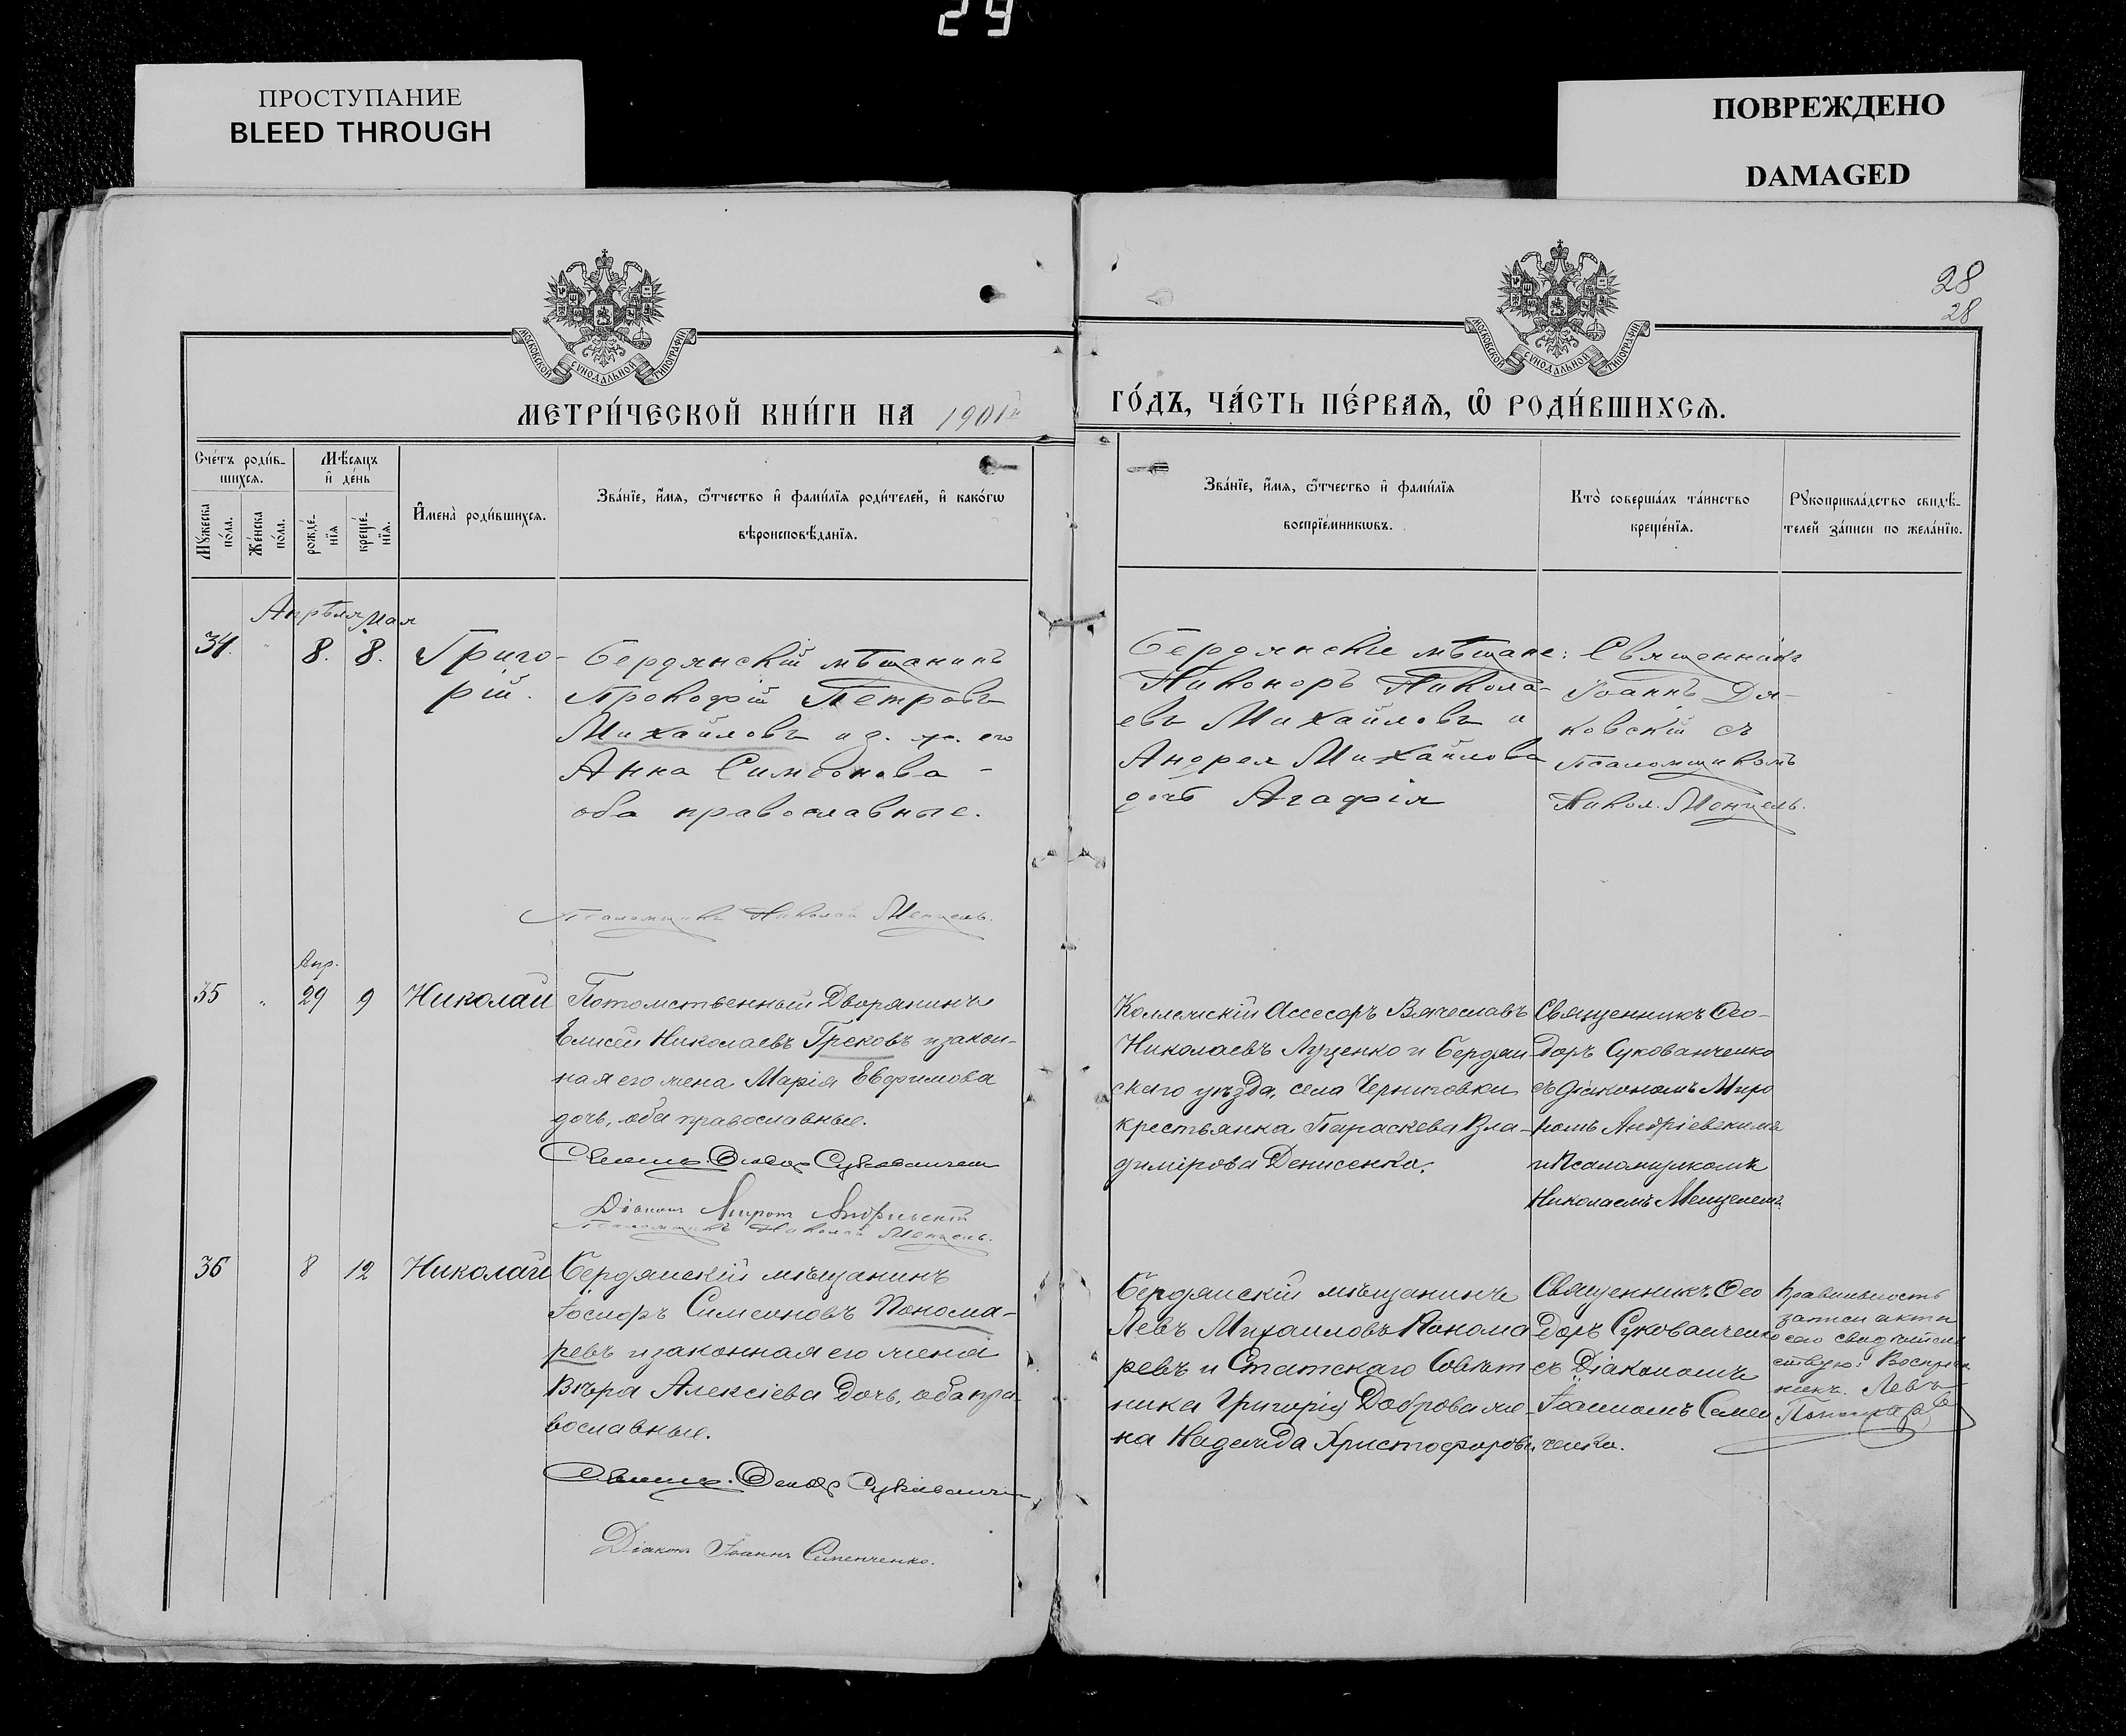 29
ПРОСТУПАНИЕ
BLEED THROUGH
ПОВРЕЖДЕНО
DAMAGED
28
28
МОСКОВСКОЙ СѴНОДАЛЬНОЙ ТИПОГРАФІИ
МОСКОВСКОЙ СѴНОДАЛЬНОЙ ТИПОГРАФІИ
МЕТРИ́ЧЕСКОЙ КНИ́ГИ НА 1901й
ГО́ДЪ, ЧА́СТЬ ПЕ́РВАЯ, Ѡ РОДИ́ВШИХСЯ.
Сче́тъ роди́в-
шихся.
Мѣ́сяцъ
и де́нь
Му́жеска
по́ла.
Же́нска
по́ла.
рожде́-
нія
креще́-
нія.
Имена̀ роди́вшихся.
Зва́ніе, и́мя, ѻ́тчество и фами́лія роди́телей, и како́гѡ
вѣроисповѣ́данія.
Зва́ніе, и́мя, ѻ́тчество и фами́лія
воспріе́мниковъ.
Кто̀ соверша́лъ та́инство
креще́нія.
Рукоприкла́дство свидѣ́-
телей за́писи по жела́нію.
Апрѣля Мая
34. " 8. 8. Григо-
рій.
Бердянскій мѣщанинъ
Прокофій Петровъ
Михайловъ и з. ж. его
Анна Симеонова -
оба православные.
Бердянскіе мѣщане:
Никоноръ Никола-
евъ Михайловъ и
Андрея Михайлова
дочь Агафія
Священникъ
Іоаннъ Дя-
ковскій съ
Псаломщикомъ
Никол. Менцель.
Псаломщикъ Николай Менцель.
Апр.
35 " 29 9 Николай
Потомственный Дворянинъ
Елисей Николаевъ Грековъ и закон-
ная его жена Марія Евфимова
дочь, оба православные.
Священ. Ѳеодор Сукованчен
Діаконъ Миронъ Андріевскій
Псаломщикъ Николай Менцель.
Коллежскій Ассесоръ Вячеславъ
Николаевъ Луценко и Бердян-
скаго уѣзда, села Черниговки
крестьянка Параскева Вла-
димірова Денисенко.
Священникъ Ѳео-
доръ Сукованченко
съ Діакономъ Миро
номъ Андріевскимъ
и Псаломщикомъ
Николаемъ Менцелемъ
36 8 12 Николай
Бердянскій мѣщанинъ
Іосифъ Симеоновъ Понома-
ревъ и законная его жена
Вѣра Алексіева дочь, оба пра-
вославные.
Священ. Ѳеодор Сукованчен
Діаконъ Іоаннъ Семенченко.
Бердянскій мѣщанинъ
Левъ Михаиловъ Понома
ревъ и Статскаго Совѣт
ника Григорія Доброва же-
на Надежда Христофорова.
Священникъ Ѳео
доръ Сукованченко
съ Діакономъ
Іоанномъ Семен
ченко.
Правильность
записи акта
сего свидѣтель
ствую: Воспріем
никъ. Левъ
Пономарев